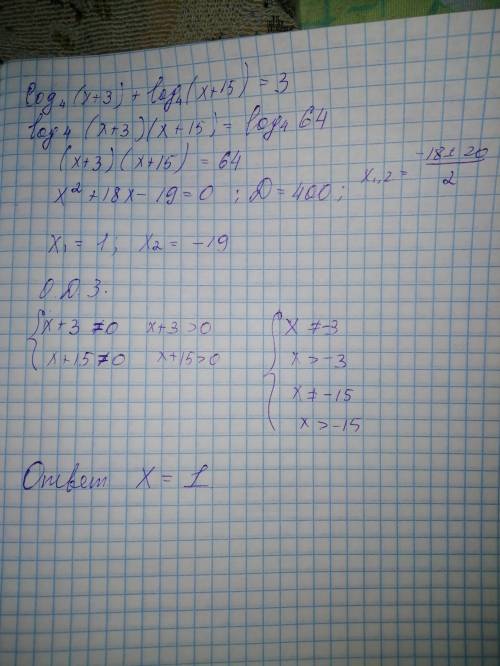 log₄(x+3) + log₄(x+15) = 3
log₄ (x+3)(x+15) = log₄ 64
(x+3)(x+15) = 64
x² + 18x - 19 = 0 ; D = 400 ; x₁,₂ = (-18 ± 20)/2
x₁ = 1 ; x₂ = -19
О.Д.З.
{ x+3 ≠ 0 x+3 > 0 { x ≠ -3
x+15 ≠ 0 x+15 > 0 x > -3
x ≠ -15
x > -15
Ответ x = 1